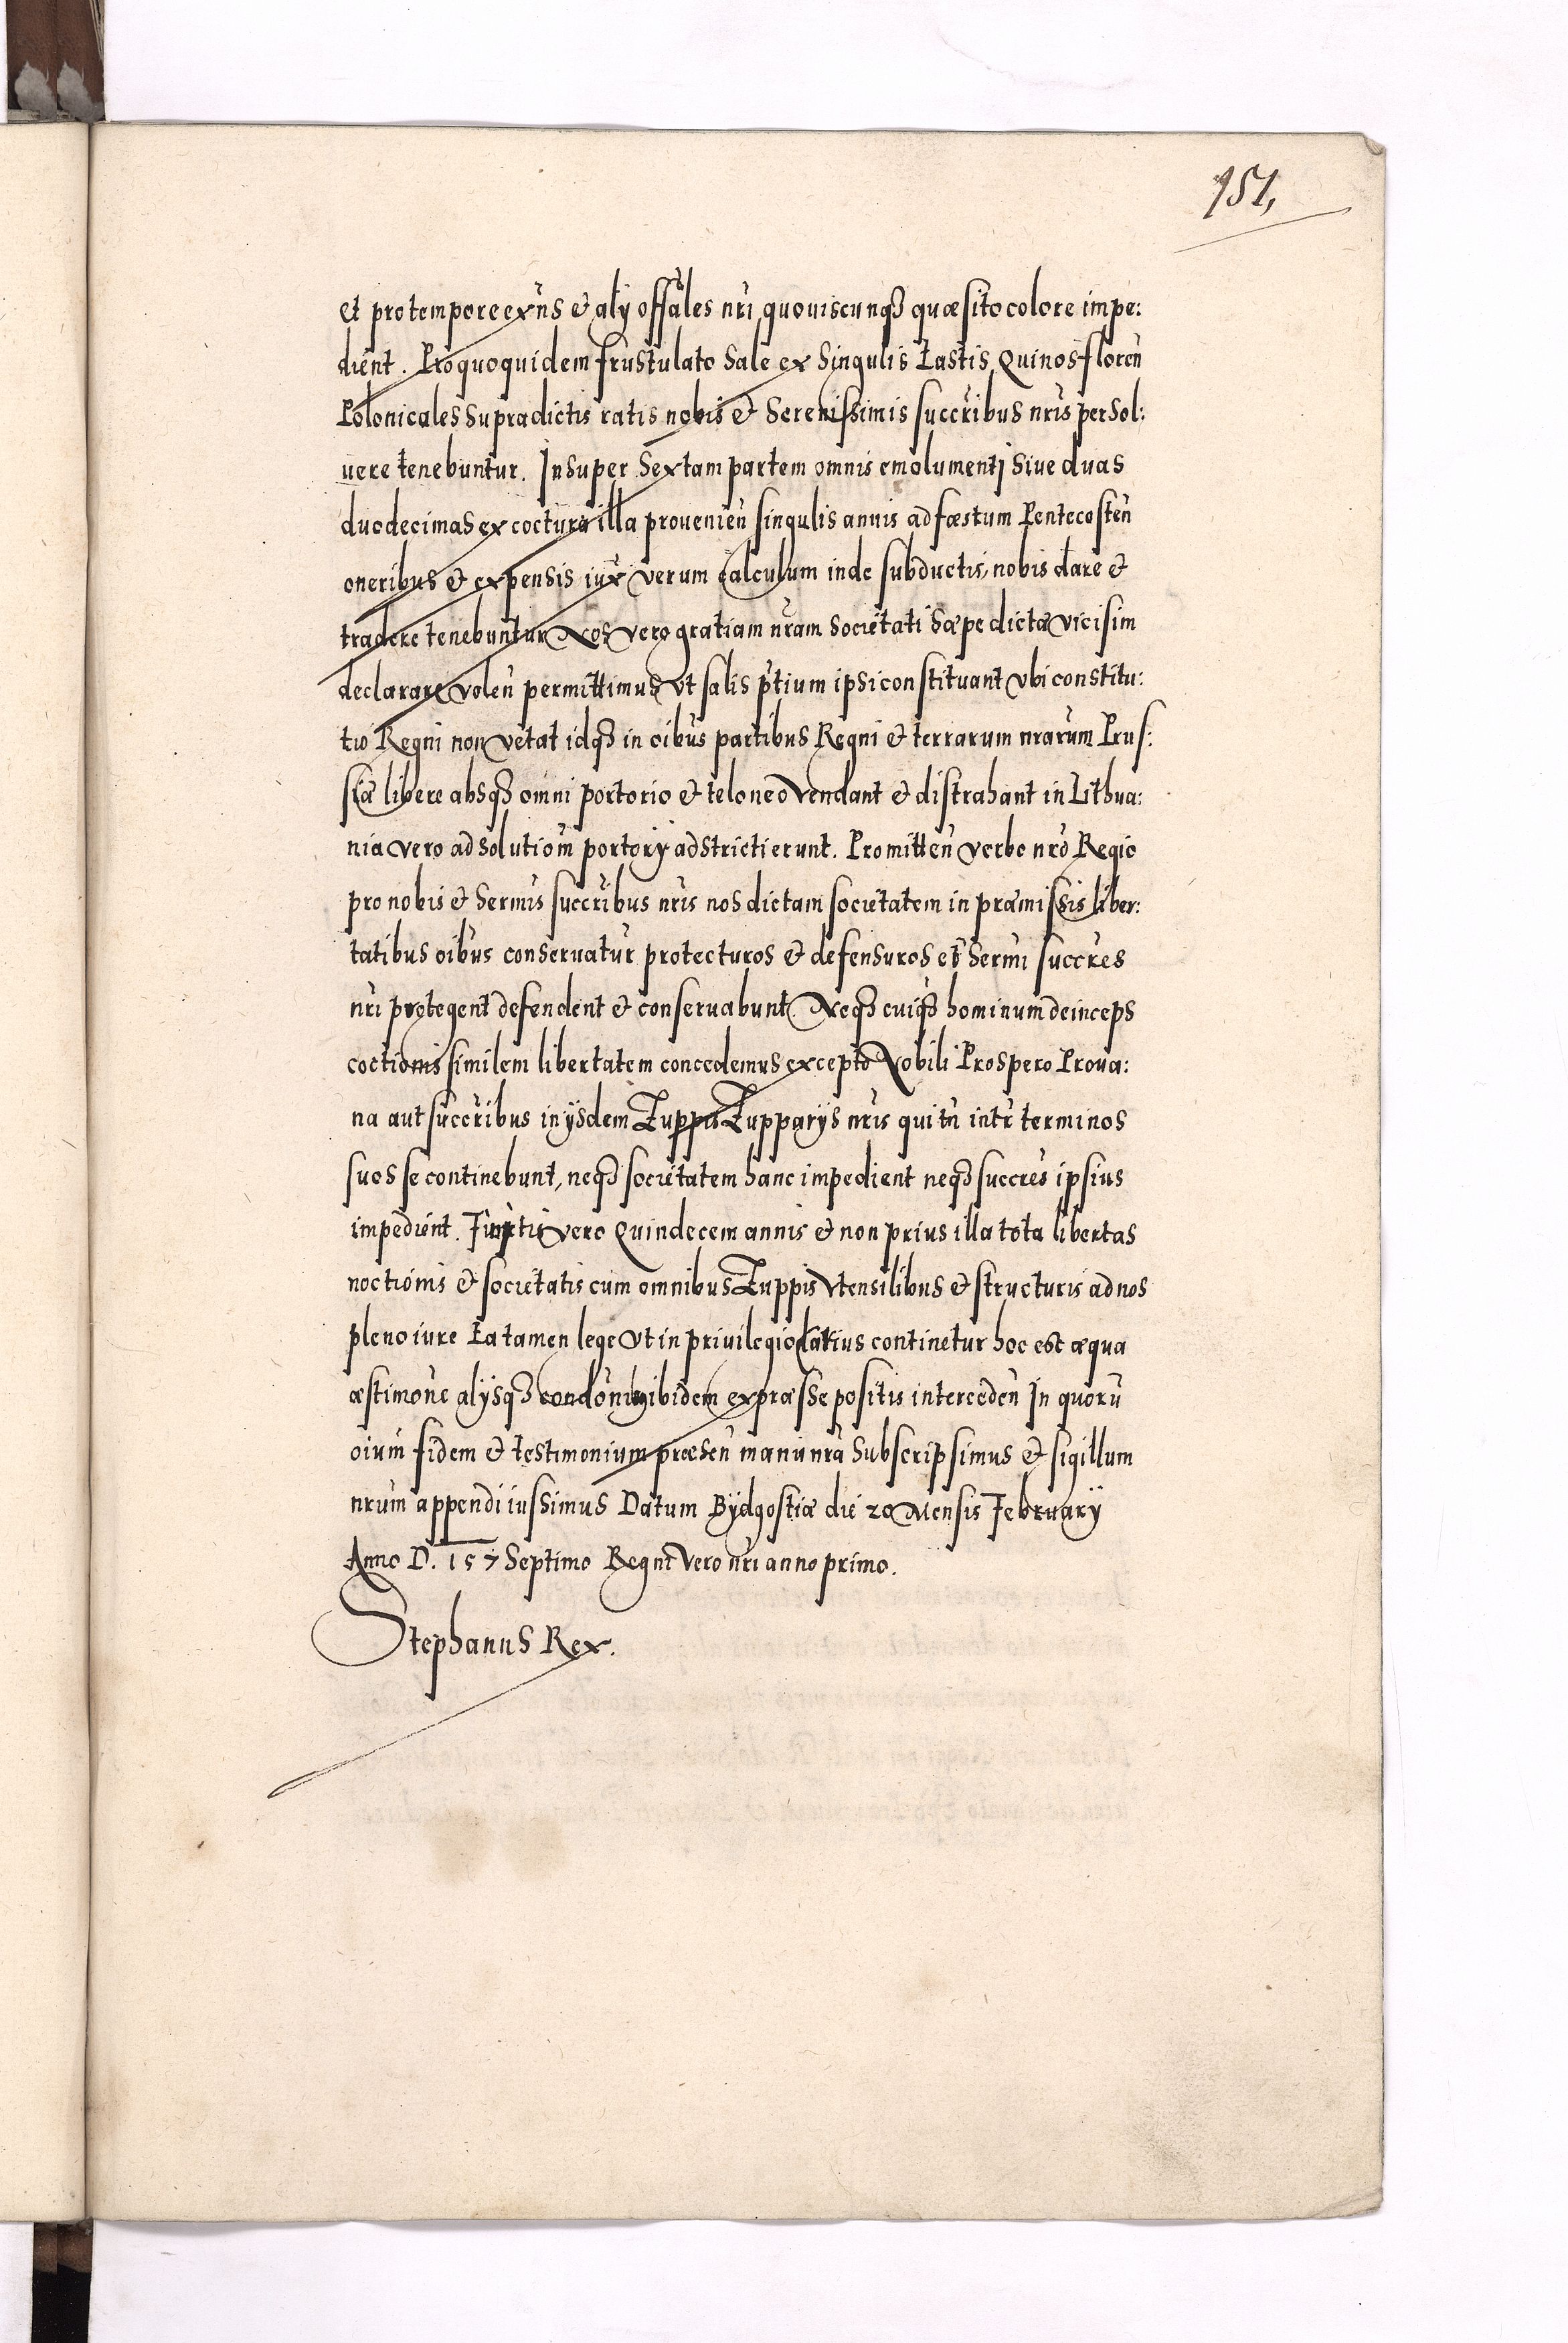 151,
et pro tempore exñs & alÿ offãles nri quouiscunqȝ quæsito colore impe:
dient. Pro quo quidem frustulato Sale ex Singulis Lastis Quinos floreñ
Polonicales Supradictis ratis nobis & Serenissimis succribus nris persol:
uere tenebuntur. Insuper Sextam partem omnis emolumenti Siue duas
duodecimas ex coctura illa prouenieñ singulis annis ad fæstum Pentecosteñ
oneribus & expensis iux verum calculum inde subductis, nobis dare &
tradere tenebuntur Nos vero gratiam nram Societati Sæpe dictæ vicisim
declarare voleñ permittimus vt salis ptium ipsi constituant vbi constitu:
tio Regni non vetat idqȝ in oibus partibus Regni & terrarum nrarum Prus:
siæ libere absqȝ omni portorio & teloneo Vendant & distrahant in Lithua:
nia vero ad solutiom portorÿ adstricti erunt. Promitteñ verbo nro Regio
pro nobis & Sermis succribus nris nos dictam societatem in præmissis liber:
tatibus oibus conseruatur protecturos & defensuros et Sermi succres
nri protegent defendent & conseruabunt Neqȝ cuiqȝ hominum deinceps
coctionis similem libertatem concedemus excepto Nobili Prospero Proua:
na aut succribus in ÿsdem Zuppis Zupparÿs nris qui tñ intr terminos
suos se continebunt, neqȝ societatem hanc impedient neqȝ succres ipsius
impedient. vero Quindecem annis & non prius illa tota libertas
noctionis & societatis cum omnibus Zuppis Vtensilibus & structuris ad nos
pleno iure Ea tamen lege Vt in priuilegio latius continetur hoc est æqua
æstimone alÿsqȝ ibidem expræsse positis intercedeñ In quoru
oium fidem & testimonium præseñ manu nra Subscripsimus & sigillum
nrum appendi iussimus Datum Bÿdgostiæ die 20 Mensis Februarÿ
Anno D. 157 Septimo Regni Vero nri anno primo.
Stephanus Rex.